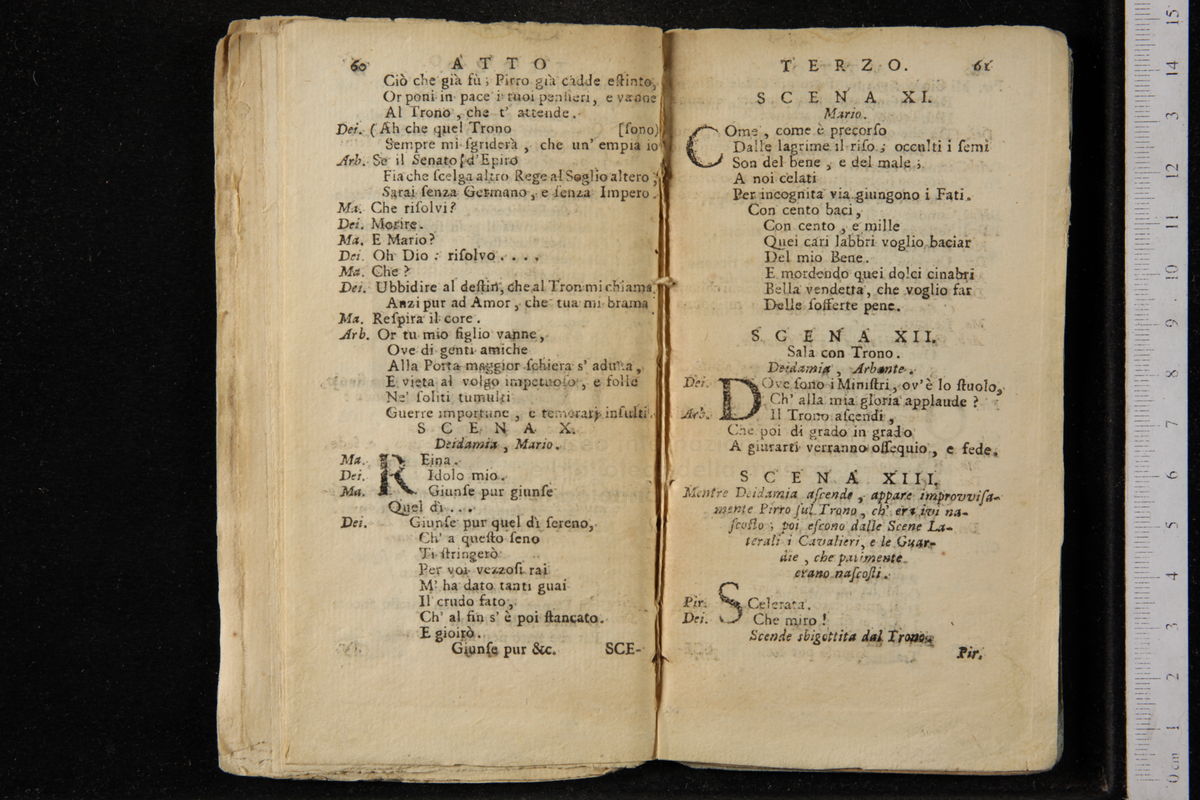 60 ATTO
Ciò che già fù; Pirro già cadde eſtinto,
Or poni in pace i tuoi penſieri, e vanne
Al Trono, che t' attende.
Dei. (Ah che quel Trono [ſono)
Sempre mi ſgriderà, che un' empia io
Arb. Se il Senato d'Epiro
Fia che ſcelga altro Rege al Soglio altero;
Sarai ſenza Germano, e ſenza Impero.
Ma. Che riſolvi?
Dei. Morire.
Ma. E Mario?
Dei. Oh Dio: riſolvo....
Ma. Che?
Dei. Ubbidire al deſtin, che al Tron mi chiama,
Anzi pur ad Amor, che tua mi brama
Ma. Reſpira il core.
Arb. Or tu mio figlio vanne,
Ove di genti amiche
Alla Porta maggior ſchiera s' aduna,
E vieta al volgo impetuoſo, e folle
Ne' ſoliti tumulti
Guerre importune, e temerarj inſulti.
SCENA X.
Deidamia, Mario.
Ma. REina.
Dei. Idolo mio.
Ma. Giunſe pur giunſe
Quel dì...
Dei. Giunſe pur quel dì ſereno,
Ch' a queſto ſeno
Ti ſtringerò
Per voi vezzoſi rai
M' ha dato tanti guai
Il crudo fato,
Ch' al fin s' è poi ſtancato.
E gioirò.
Giunſe pur &c. SCE-
TERZO. 61
SCENA XI.
Mario.
COme, come è precorſo
Dalle lagrime il riſo; occulti i ſemi
Son del bene, e del male;
A noi celati
Per incognita via giungono i Fati.
Con cento baci,
Con cento, e mille
Quei cari labbri voglio baciar
Del mio Bene.
E mordendo quei dolci cinabri
Bella vendetta, che voglio far
Delle ſofferte pene.
SCENA XII.
Sala con Trono.
Deidamia, Arbante.
Dei. DOve ſono i Miniſtri, ov'è lo ſtuolo,
Ch' alla mia gloria applaude?
Arb. Il Trono aſcendi,
Che poi di grado in grado
A giurarti verranno oſſequio, e fede.
SCENA XIII.
Mentre Deidamia aſcende, appare improvviſa-
mente Pirro ſul Trono, ch' era ivi na-
ſcoſto; poi eſcono dalle Scene La-
terali i Cavalieri, e le Guar-
die, che parimente
erano naſcoſti.
Pir. SCelerata.
Dei. Che miro!
Scende sbigottita dal Trono.
Pir.